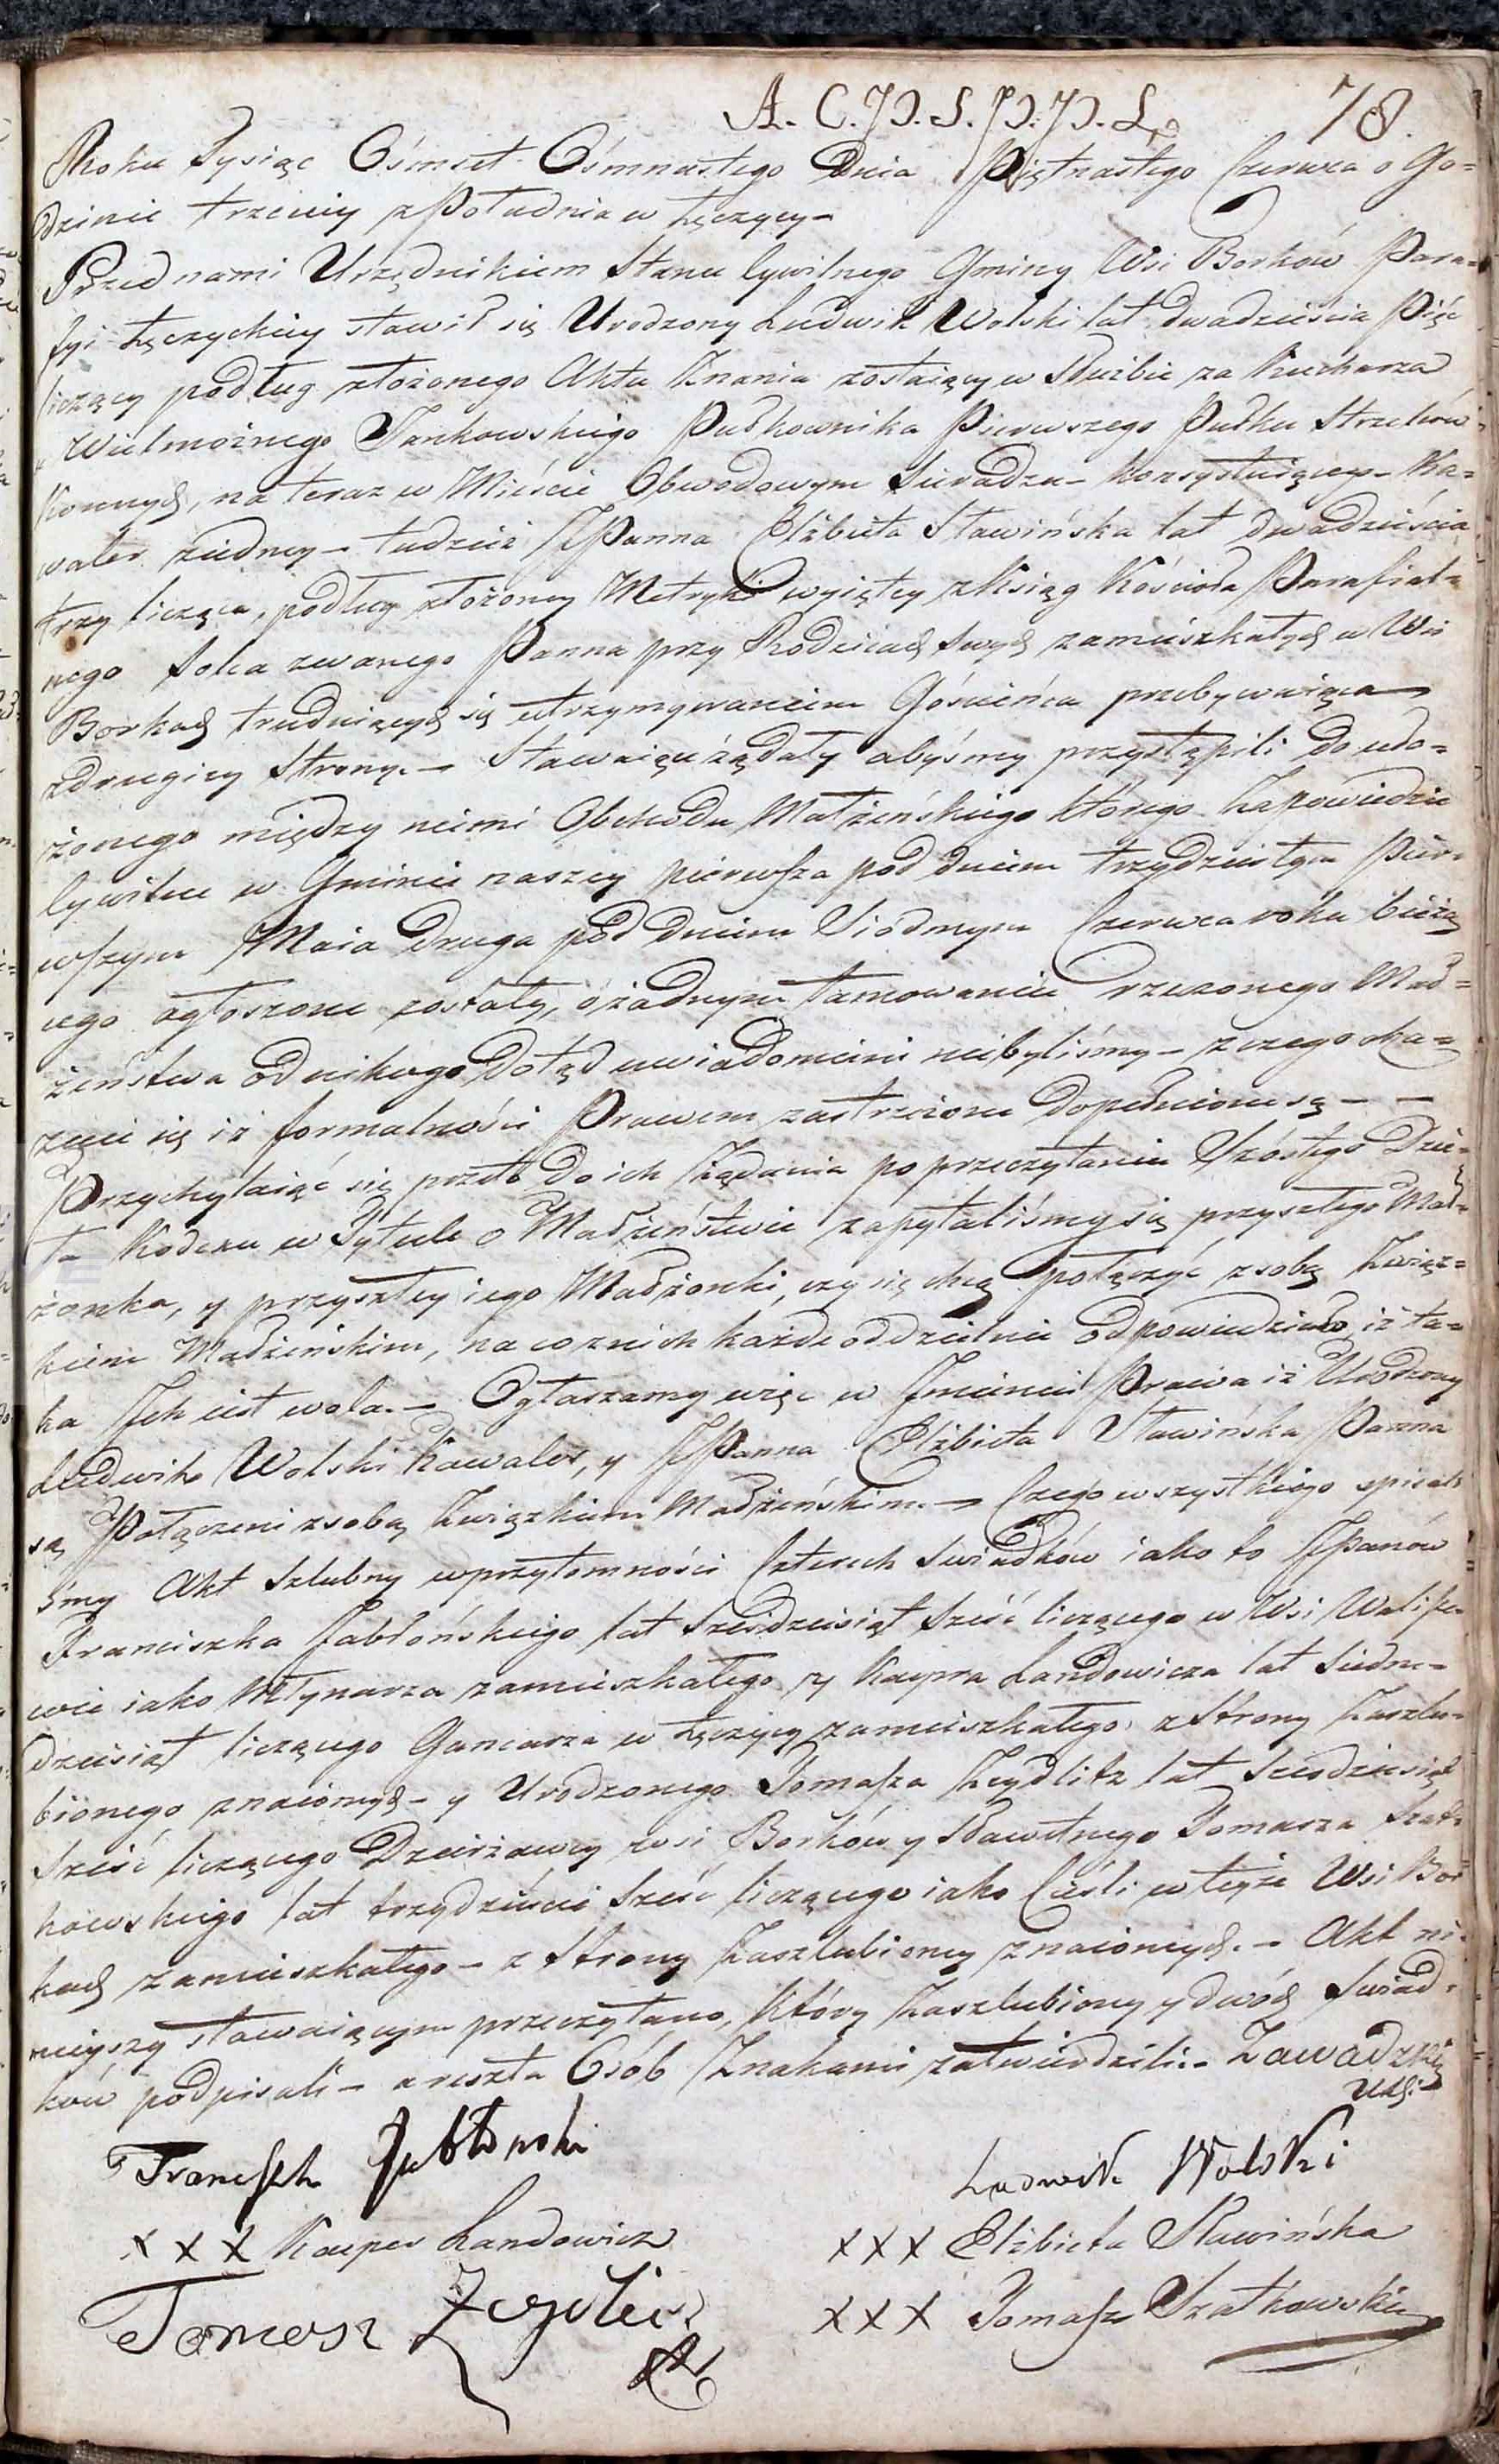 A. C. P. S. P. P. Ł. 78.
Roku Tysiąc Ośmset Ośmnastego Dnia Piętnastego Czerwca o Go=
dzinie trzeciey z Południa w Łęczycy –
Przed nami Urzędnikiem Stanu Cywilnego Gminy Wsi Borków Para=
fyi Łęczyckiey stawił się Urodzony Ludwik Wolski lat dwadzieścia Pięć
liczący podług złożonego Aktu Znania zostaiący w Służbie za Kucharza
u Wielmożnego Jankowskiego Pułkownika Pierwszego Pułku Strzelców
Konnych, na teraz w Mieście Obwodowym Sieradzu – konsystuiącego – Ka=
waler ziedney – tudzież JPanna Elżbieta Sławińska lat dwadzieścia
trzy licząca, podług złożoney Metryki wyiętey z Ksiąg Kościoła Parafial=
nego Solca zwanego Panna przy Rodzicach swych zamieszkałych w Wsi
Borkach trudniących się utrzymywaniem Gościńca przebywaiąca
zdrugiey Strony. – Stawaiący żądały abyśmy przystąpili do uło=
żonego między niemi Obchodu Małżeńskiego którego Zapowiedzie
Cywilne w Gminie naszey pierwsza pod dniem trzydziestym Pier=
wszym Maia Druga pod dniem Siodmym Czerwca roku bieżą
cego ogłoszone zostały, o żadnym tamowaniu rzeczonego Mał=
żeństwa od nikogo dotąd uwiadomieni niebyliśmy – z czego oka=
zuie się iż formalności Prawem zastrzeżone dopełnione są – –
Przychylaiąc się przeto do ich Żądania po przeczytaniu Szóstego Dzia=
łu Kodexu w Tytule o Małżeństwie zapytaliśmy się przyszłego Mał=
żonka, y przyszłey iego Małżonki, czy się chcą połączyć z sobą Związ=
kiem Małżeńskim, na co znich każde oddzielnie odpowiedziało iż ta=
ka Ich iest wola. – Ogłaszamy więc w Imieniu Prawa iż Urodzony
Ludwik Wolski Kawaler, y JPanna Elżbieta Sławińska Panna
są Połączeni zsobą Związkiem Małżeńskim. – Czego wszystkiego spisali
śmy Akt Szlubny wprzytomności Czterech Swiadków iako to JPanów
Franciszka Jabłońskiego lat Sześdziesiąt Sześć liczącego w Wsi Walisze
wie iako Młynarza zamieszkałego y Kaspra Landowicza lat Siedm=
dziesiąt liczącego Garncarza w Łęczycy zamieszkałego z Strony Zaszlu=
bionego znaiomych – y Urodzonego Tomasza Zeydlitz lat Sześdziesiąt
Sześć liczącego Dzierżawcy wsi Borków y Sławetnego Tomasza Szat=
kowskiego lat trzydzieści Sześć liczącego iako Cieśli w teyże Wsi Bor=
kach zamieszkałego – z Strony Zaszlubioney znaiomych. – Akt ni=
nieyszy stawaiącym przeczytano, który Zaszlubiony y dwóch Swiad=
ków podpisali – a reszta Osób Znakami zatwierdzili. – Zawadzki
Franciszek Jabłonski
Ludwik Wolski
x x x Kacper Landowicz
x x x Elżbieta Sławińska
Tomasz Zeydlic
x x x Tomasz Szatkowski